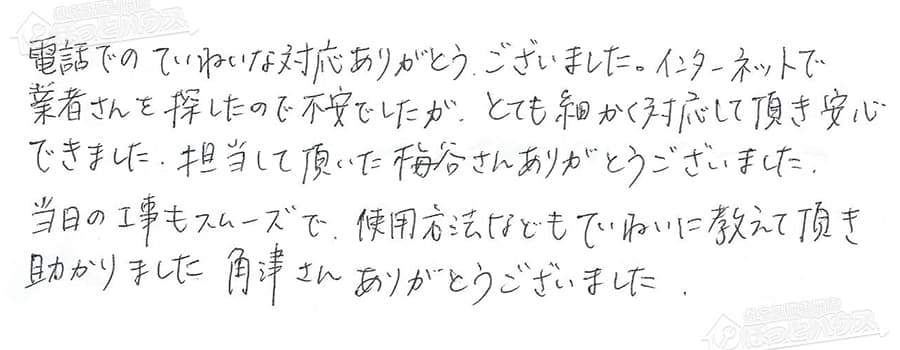 電話でのていねいな対応ありがとうございました。インターネットで
業者さんを探したので不安でしたが、とても細かく対応して頂き安心
できました。担当して頂いた梅谷さんありがとうございました。
当日の工事もスムーズで、使用方法などもていねいに教えて頂き
助かりました 角津さん ありがとうございました。